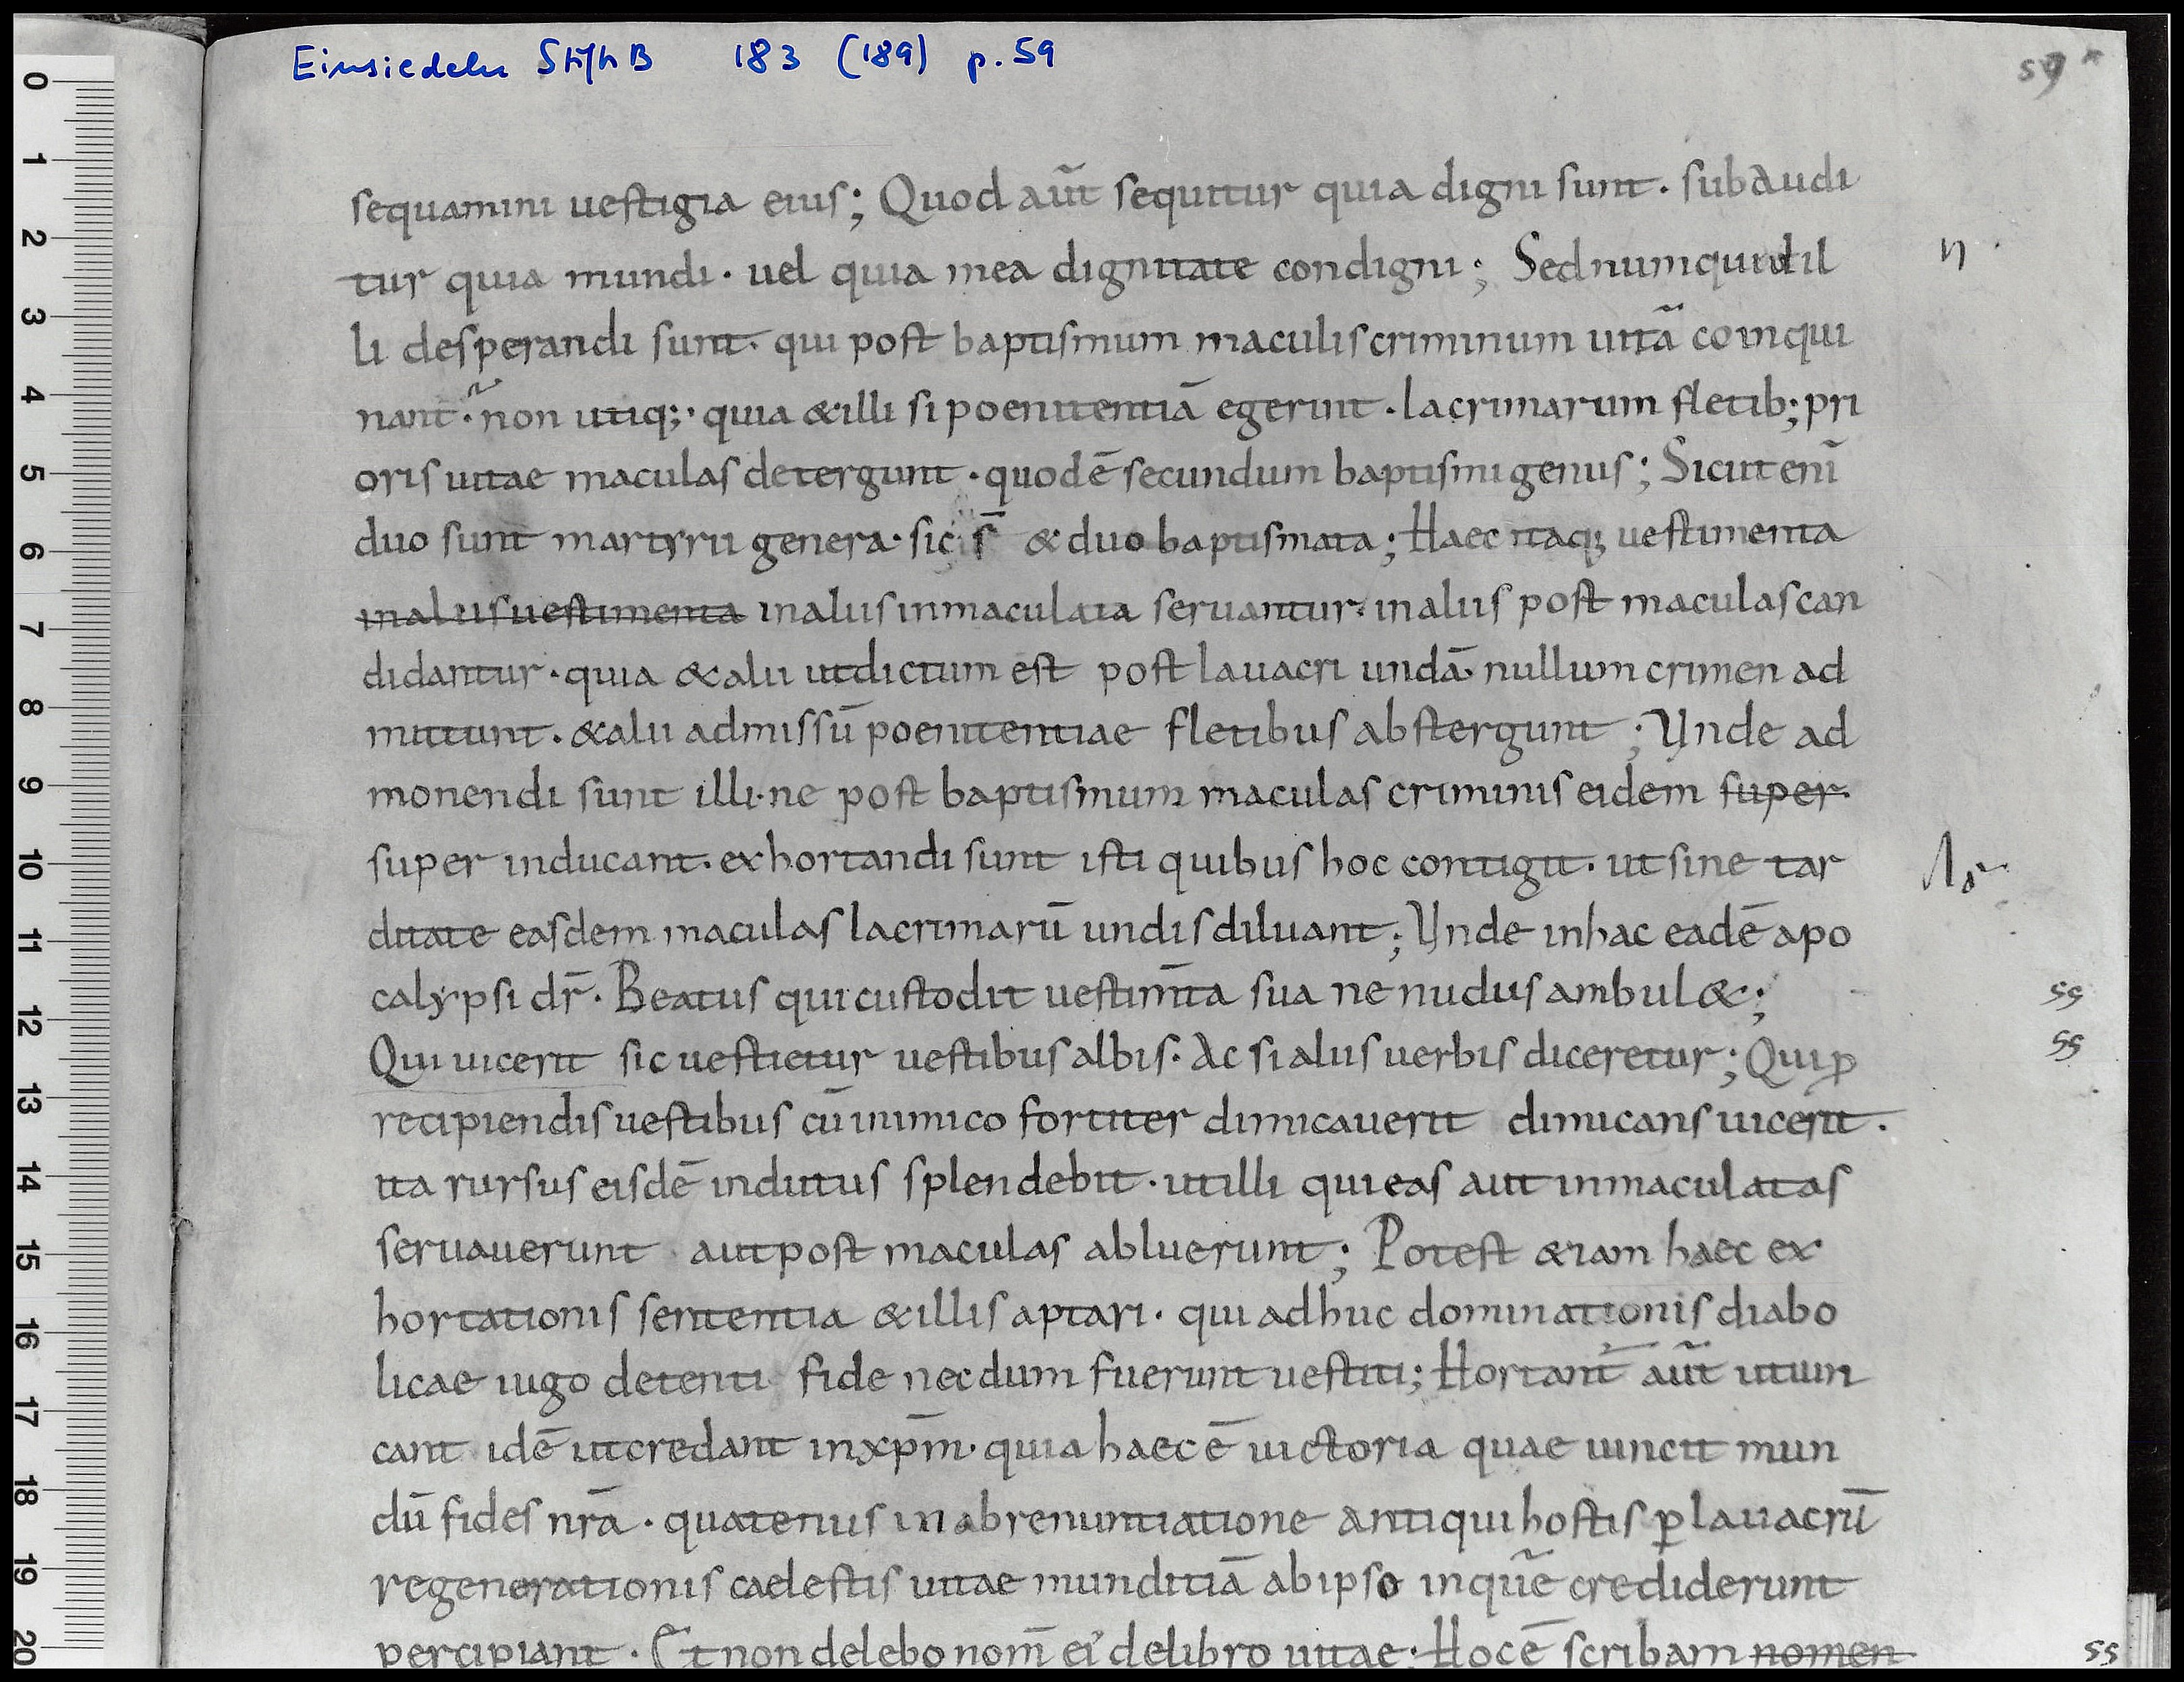 Einsiedeln StiftB 183 (189) p. 59
59
sequamini uestigia eius; Quod aut̃ sequitur quia digni sunt · subaudi
tur quia mundi · uel quia mea dignitate condigni; Sed numquid il
li desperandi sunt · qui post baptismum maculis criminum uitã coinqui
nant · non utiq; · quia & illi si poenitentiā egerint · lacrimarum fletib; pri
oris uitae maculas detergunt · quod ē secundum baptismi genus; Sicut enī
duo sunt martyrii genera · sic s̄ & duo baptismata; Haec itaq; uestimenta
in aliis uestimenta in aliis inmaculata seruantur · in aliis post maculas can
didantur · quia & alii ut dictum est post lauacri undā nullum crimen ad
mittunt · & alii admissū poenitentiae fletibus abstergunt; Unde ad
monendi sunt illi · ne post baptismum maculas criminis eidem super
super inducant · exhortandi sunt isti quibus hoc contigit · ut sine tar
ditate easdem maculas lacrimarū undis diluant; Unde in hac eadē apo
calypsi dr̄ · Beatus qui custodit uestim̄ta sua ne nudus ambul&;
Qui uicerit sic uestietur uestibus albis · Ac si aliis uerbis diceretur; Qui ꝓ
recipiendis uestibus cū inimico fortiter dimicauerit dimicans uicerit ·
ita rursus eisdē indutus splendebit · ut illi qui eas aut inmaculatas
seruauerunt aut post maculas abluerunt; Potest &iam haec ex
hortationis sententia & illis aptari · qui adhuc dominationis diabo
licae iugo detenti fide necdum fuerunt uestiti; Hortant̄ aut̃ ut uin
cant idē ut credant in xp̄m · quia haec ē uictoria quae uincit mun
dū fides nr̄a · quatenus in abrenuntiatione antiqui hostis ꝑ lauacrū
regenerationis caelestis uitae munditiā ab ipso in quē crediderunt
percipiant · Et non delebo nom̄ ei' de libro uitae · Hoc ē scribam nomen
n ·
ss
ss
ss